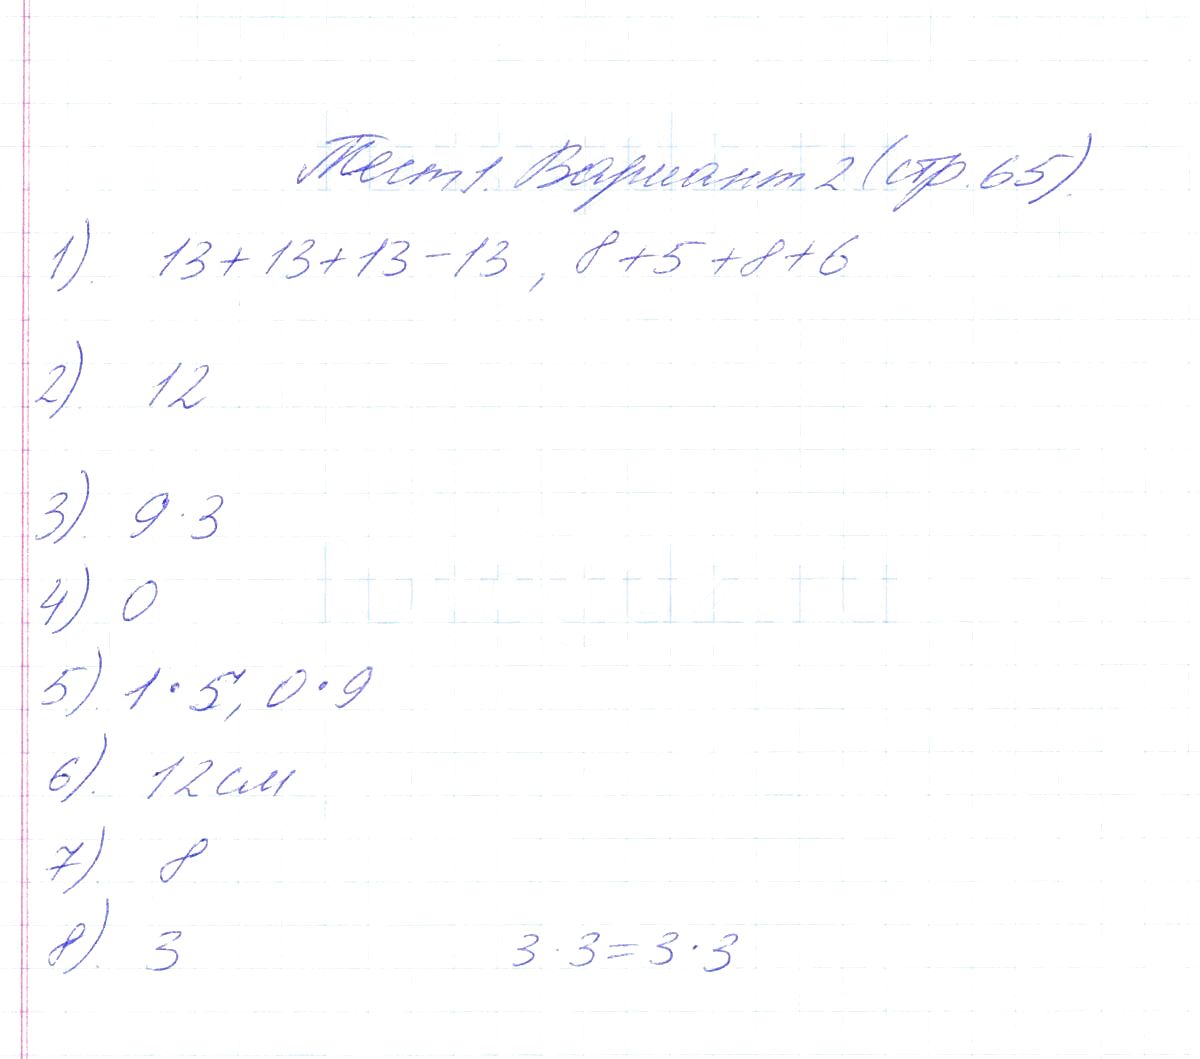 Тест 1. Вариант 2 (стр. 65).
1). 13 + 13 + 13 - 13, 8 + 5 + 8 + 6
2) 12
3). 9 · 3
4) 0
5). 1 · 5, 0 · 9
6). 12 см
7) 8
8). 3 3 · 3 = 3 · 3